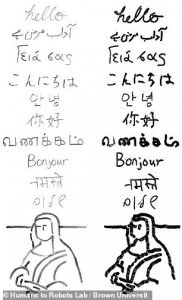 hello hello
Γειά σας Γειά σας
こんにちは こんにちは
안녕 안녕
你好 你好
வணக்கம் வணக்கம்
Bonjour Bonjour
नमस्ते नमस्ते
שלום שלום
© Humans to Robots Lab / Brown Universit